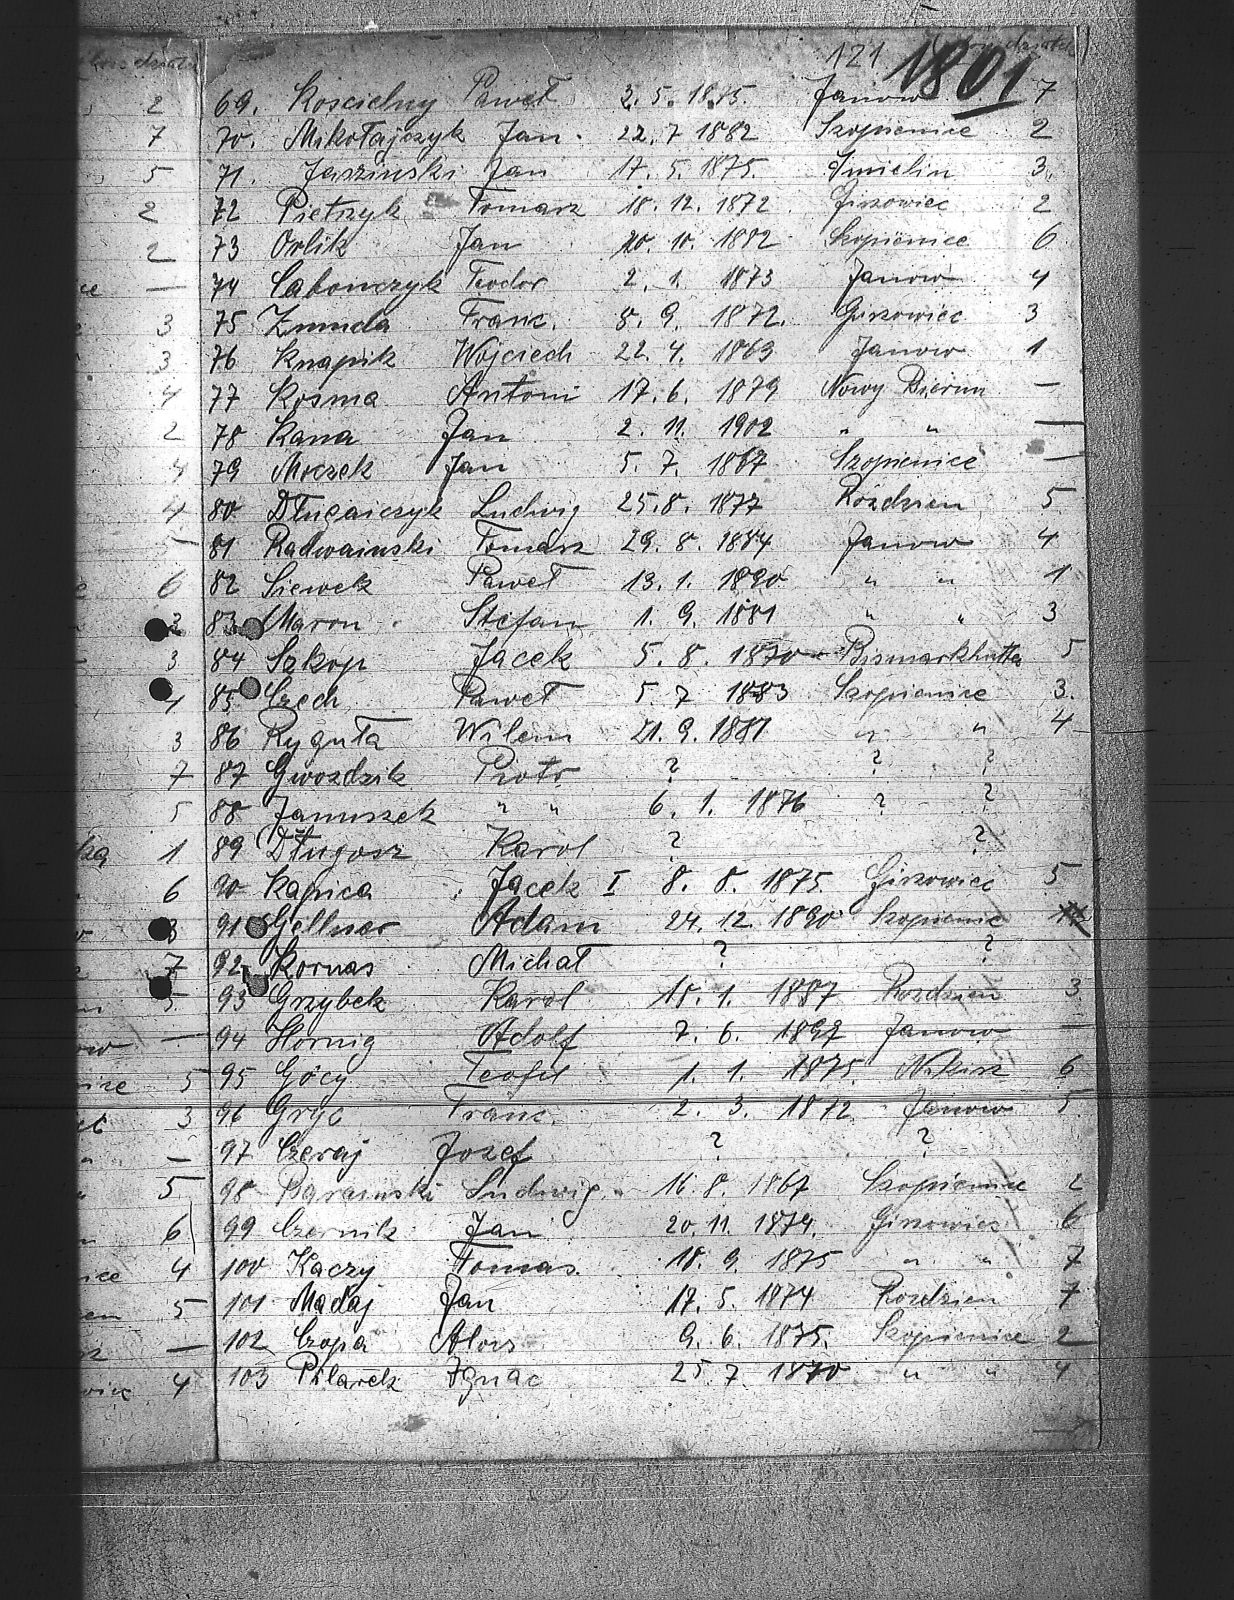 121 1801
69. Koscielny Paweł 2. 5. 1885. Janow 7
70. Mikołajczyk Jan. 22. 7 1882 Szopienice 2
71. Jasziński Jan 17. 5. 1875. Imielin 3.
72 Pietszyk Tomasz 18. 12. 1872 Giszowiec 2
73 Orlik Jan 20. 10. 1882 Szopienice 6
74 Labonczyk Teodor 2. 1. 1873 Janow 4
75 Zmuda Franc. 8. 9. 1872. Giszowiec 3
76 Knapik Wojciech 22. 4. 1869 Janow 1
77 Kosma Antoni 17. 6. 1879 Nowy Bierun —
78 Kana Jan 2. 11. 1902 " " —
79 Moczek Jan 5. 7. 1867 Szopienice —
80 Długaiczyk Ludwig 25. 8. 1877 Rozdzien 5
81 Radwainski Tomasz 29. 8. 1884 Janow 4
82 Siewek Paweł 13. 1. 1890 " " 1
83 Maron Stefan 1. 9. 1881 " " 3
84 Szkop Jacek 5. 8. 1870 Bismarkhutta 5
85 Czech Paweł 5. 7 1883 Szopienice 3.
86 Ryguła Wilem 21. 9. 1881 " " 4
87 Gwozdzik Piotr ? ? ?
88 Januszek " " 6. 1. 1876 ? ?
89 Długosz Karol ? ?
90 Kapica Jacek I 8. 8. 1875 Giszowiec 5
91 Gellner Adam 24. 12. 1890 Szopienic
92 Kornas Michał ? ?
93 Grzybek Karol 18. 1. 1887 Rozdzien 3
94 Hornig Adolf 7. 6. 1897 Janow —
95 Gócy Teofil 1. 1. 1875. 6
96 Gryc Franc. 2. 3. 1872 Janow 5
97 Czeraj Jozef ? ?
98 Ludwig. 16. 8. 1867 Szopienice 2
99 Czernik Jan 20. 11. 1874. Giszowiec 6
100 Kaczy Tomas. 18. 9. 1875 " " 7
101 Madaj Jan 17. 5. 1874 Rozdzien 7
102 Czopa Alois 9. 6. 1875. Szopienice 2
103 Pilarek Ignac 25. 7. 1870 " " 4